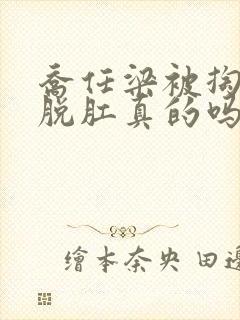 喬任梁被掏
脱肛真的吗
繪本奈央 田邊